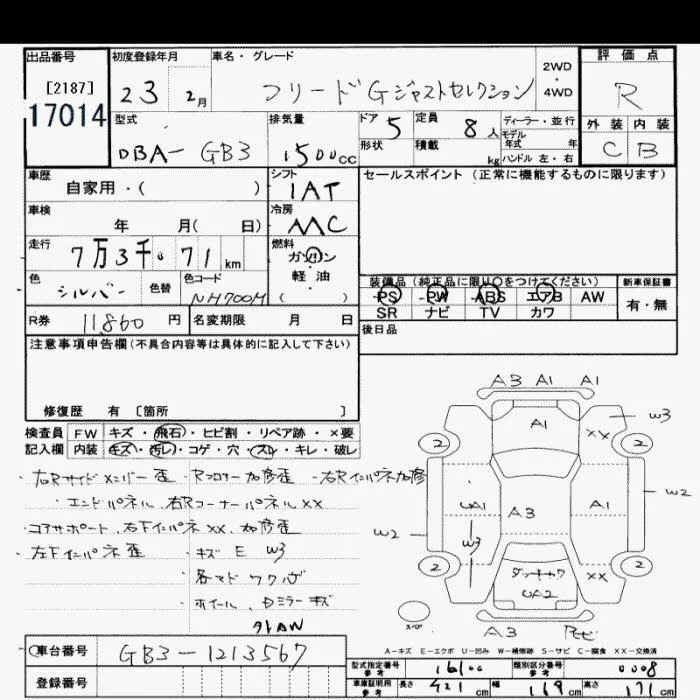 出品番号
[2187]
17014
初度登録年月
23 2月
車名・グレード
フリードGジャストセレクション
2WD
・
4WD
評価点
R
外装 内装
C B
型式
DBA-GB3
排気量
1500cc
ドア 5
形状
定員 8人
積載 kg
ディーラー・並行
モデル
年式 年
ハンドル 左・右
車歴
自家用・( )
シフト
IAT
セールスポイント (正常に機能するものに限ります)
車検
年 月( 日)
冷房
AAC
走行
7万3千071km
燃料
ガソリン
・
軽・油
( )
色
シルバー 色替
色コード
NH700M
装備品 (純正品に限り〇をつけてください)
PS PW ABS エアB AW
SR ナビ TV カワ
新車保証書
有・無
R券 11,860円
名変期限 月 日
後日品
注意事項申告欄(不具合内容等は具体的に記入して下さい)
修復歴 有 〔箇所 〕
検査員 FW キズ・飛石・ヒビ割・リペア跡・×要
記入欄 内装 キズ・汚レ・コゲ・穴・スレ・キレ・破レ
・右Rサイドメンバー歪 ・Rフロアー加修歪 ・右Rインパネ加修
・エンドパネル、右Rコーナーパネルxx
・コアサポート、右Fインパネxx、加修歪
・左Fインパネ歪
・キズ E W3
・各マド ワクサビ
・ホイール、Dミラーキズ
外AW
A3 A1 A1
A1
W3
xx
2 2
UA1
A3
A1
W2
W2
W3
2 2
ダッキカワ
UA2
xx
スペア
A3
A-キズ E-エクボ U-凹み W-補修跡 S-サビ C-腐食 XX-交換済
車台番号 GB3-1213567
登録番号
型式指定番号
参考
16100
類別区分番号
参考
0008
車庫証明用
参考
長さ 421cm 幅 169cm 高さ 171cm